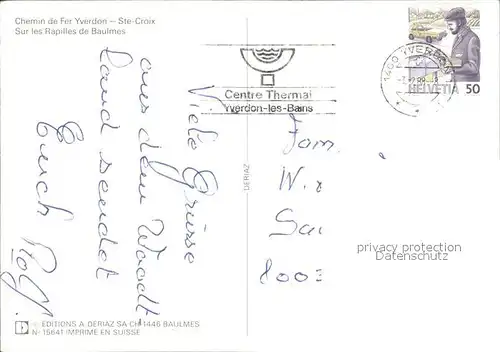 Chemin de Fer Yverdon – Ste-Croix
Sur les Rapilles de Baulmes
1400 YVERDON
HELVETIA 50
Centre Thermal
Yverdon-les-Bains
Viele Grüsse
aus dem Waadt-
land sendet
Euch Rolf
DERIAZ
Fam.
W.
8003
privacy protection
© EDITIONS A. DERIAZ SA CH 1446 BAULMES
N° 15641 IMPRIME EN SUISSE